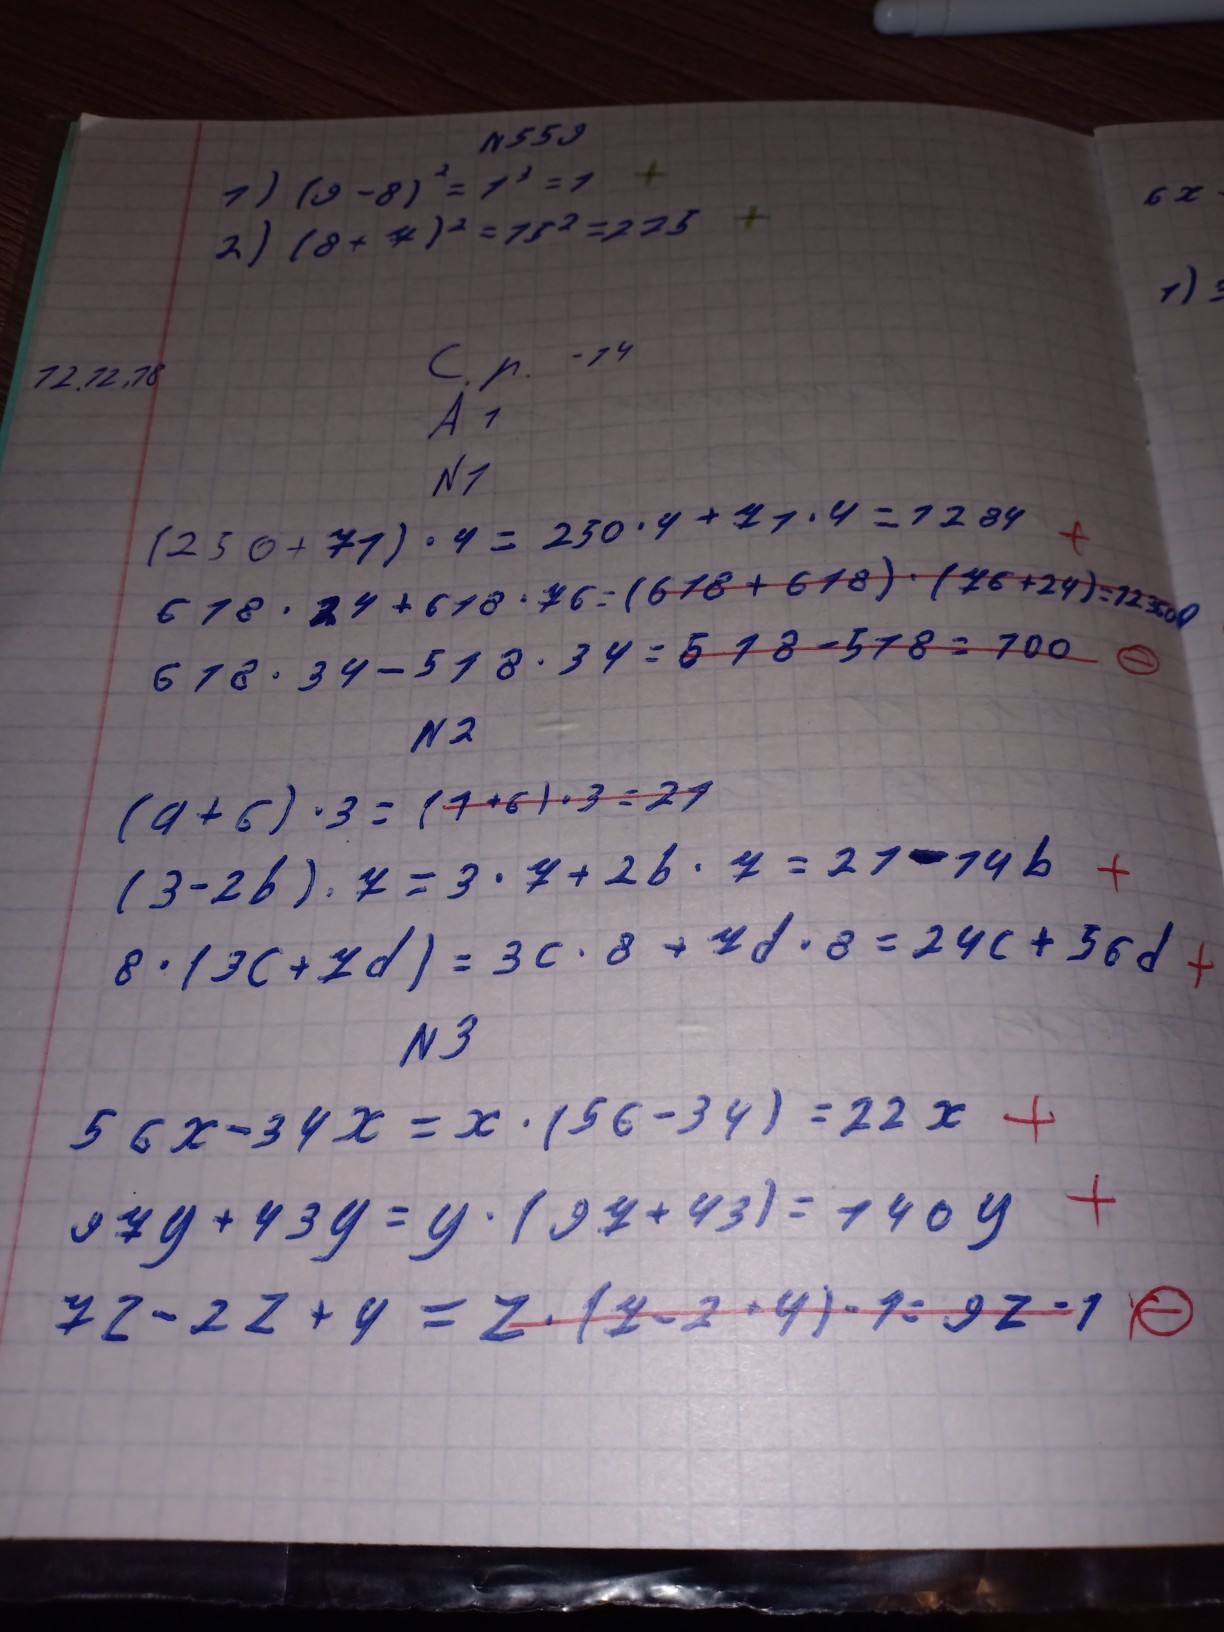 N559
1) (9-8)² = 1³ = 1 +
2) (8+7)² = 15² = 225 +
6x
1)
12.12.18
С.р. -14
А1
N1
(250+71)·4 = 250·4+71·4 = 1284 +
618·24+618·76=(618+618)·(76+24)=123600
618·34-518·34=518-518=100 ⊖
N2
(a+6)·3=(1+6)·3=21
(3-2b)·7=3·7+2b·7=21-14b +
8·(3c+7d)=3c·8+7d·8=24c+56d +
N3
56x-34x=x·(56-34)=22x +
97y+43y=y·(97+43)=140y +
7z-2z+4=z·(7-2+4)-1=9z-1 ⊖